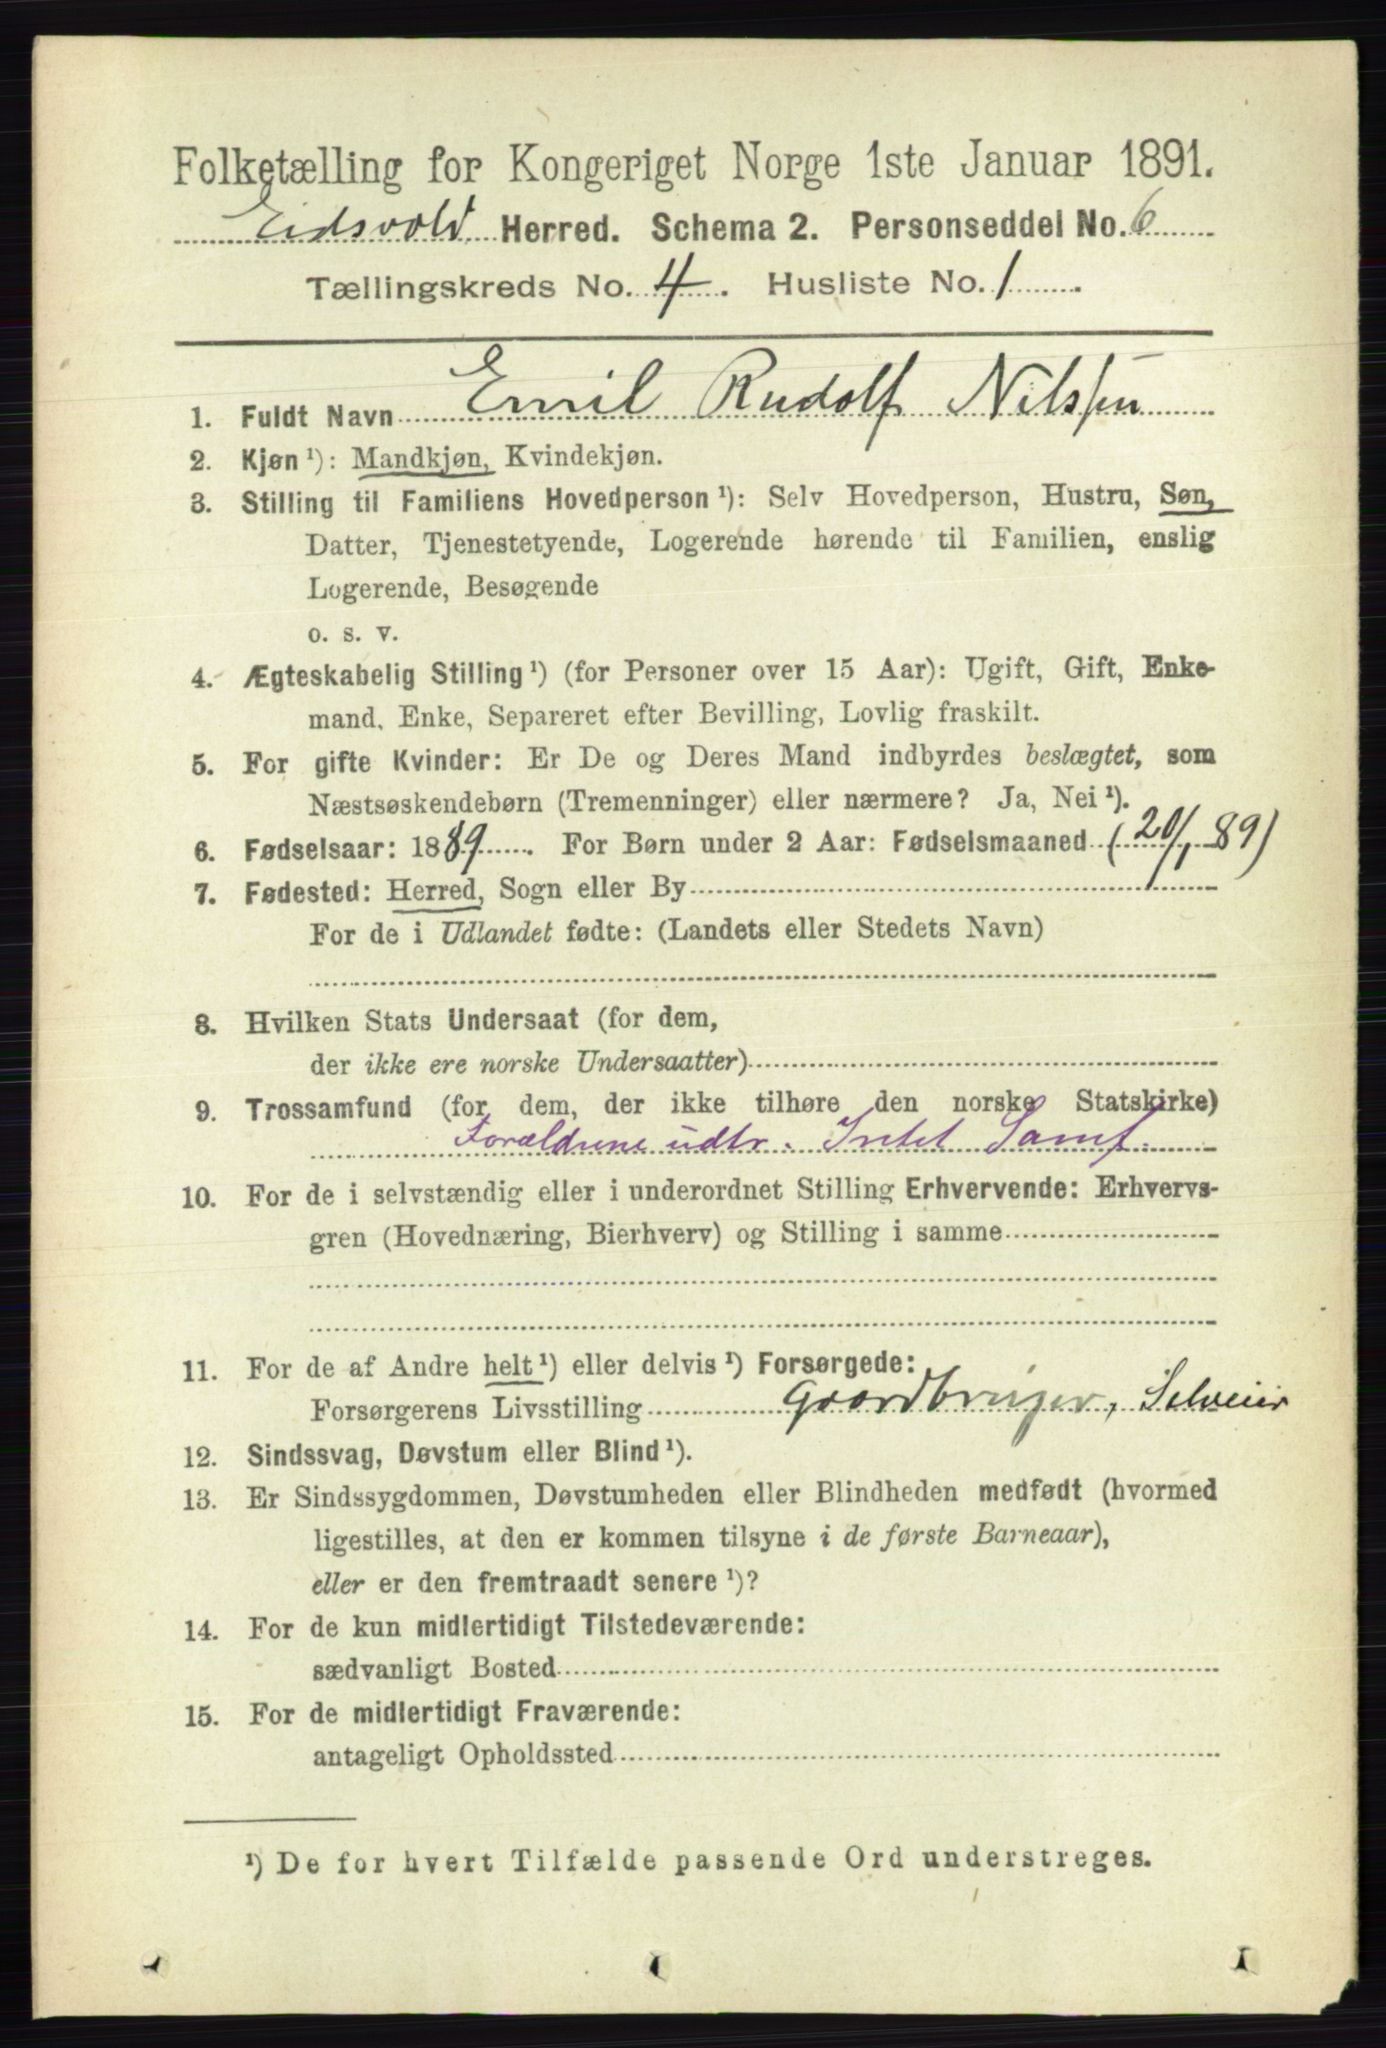 Folketælling for Kongeriget Norge 1ste Januar 1891.
Eidsvold Herred. Schema 2. Personseddel No. 6
Tællingskreds No. 4. Husliste No. 1.
1. Fuldt Navn Emil Rudolf Nilssen
2. Kjøn ¹): Mandkjøn, Kvindekjøn.
3. Stilling til Familiens Hovedperson ¹): Selv Hovedperson, Hustru, Søn,
Datter, Tjenestetyende, Logerende hørende til Familien, enslig
Logerende, Besøgende
o. s. v.
4. Ægteskabelig Stilling ¹) (for Personer over 15 Aar): Ugift, Gift, Enke-
mand, Enke, Separeret efter Bevilling, Lovlig fraskilt.
5. For gifte Kvinder: Er De og Deres Mand indbyrdes beslægtet, som
Næstsøskendebørn (Tremenninger) eller nærmere? Ja, Nei ¹).
6. Fødselsaar: 1889. For Børn under 2 Aar: Fødselsmaaned (20/1 89)
7. Fødested: Herred, Sogn eller By
For de i Udlandet fødte: (Landets eller Stedets Navn)
8. Hvilken Stats Undersaat (for dem,
der ikke ere norske Undersaatter)
9. Trossamfund (for dem, der ikke tilhøre den norske Statskirke)
Forældrene udtr. Intet Samf.
10. For de i selvstændig eller i underordnet Stilling Erhvervende: Erhvervs-
gren (Hovednæring, Bierhverv) og Stilling i samme
11. For de af Andre helt ¹) eller delvis ¹) Forsørgede:
Forsørgerens Livsstilling Gaardbruger, Selveier
12. Sindssvag, Døvstum eller Blind ¹).
13. Er Sindssygdommen, Døvstumheden eller Blindheden medfødt (hvormed
ligestilles, at den er kommen tilsyne i de første Barneaar),
eller er den fremtraadt senere ¹)?
14. For de kun midlertidigt Tilstedeværende:
sædvanligt Bosted
15. For de midlertidigt Fraværende:
antageligt Opholdssted
¹) De for hvert Tilfælde passende Ord understreges.